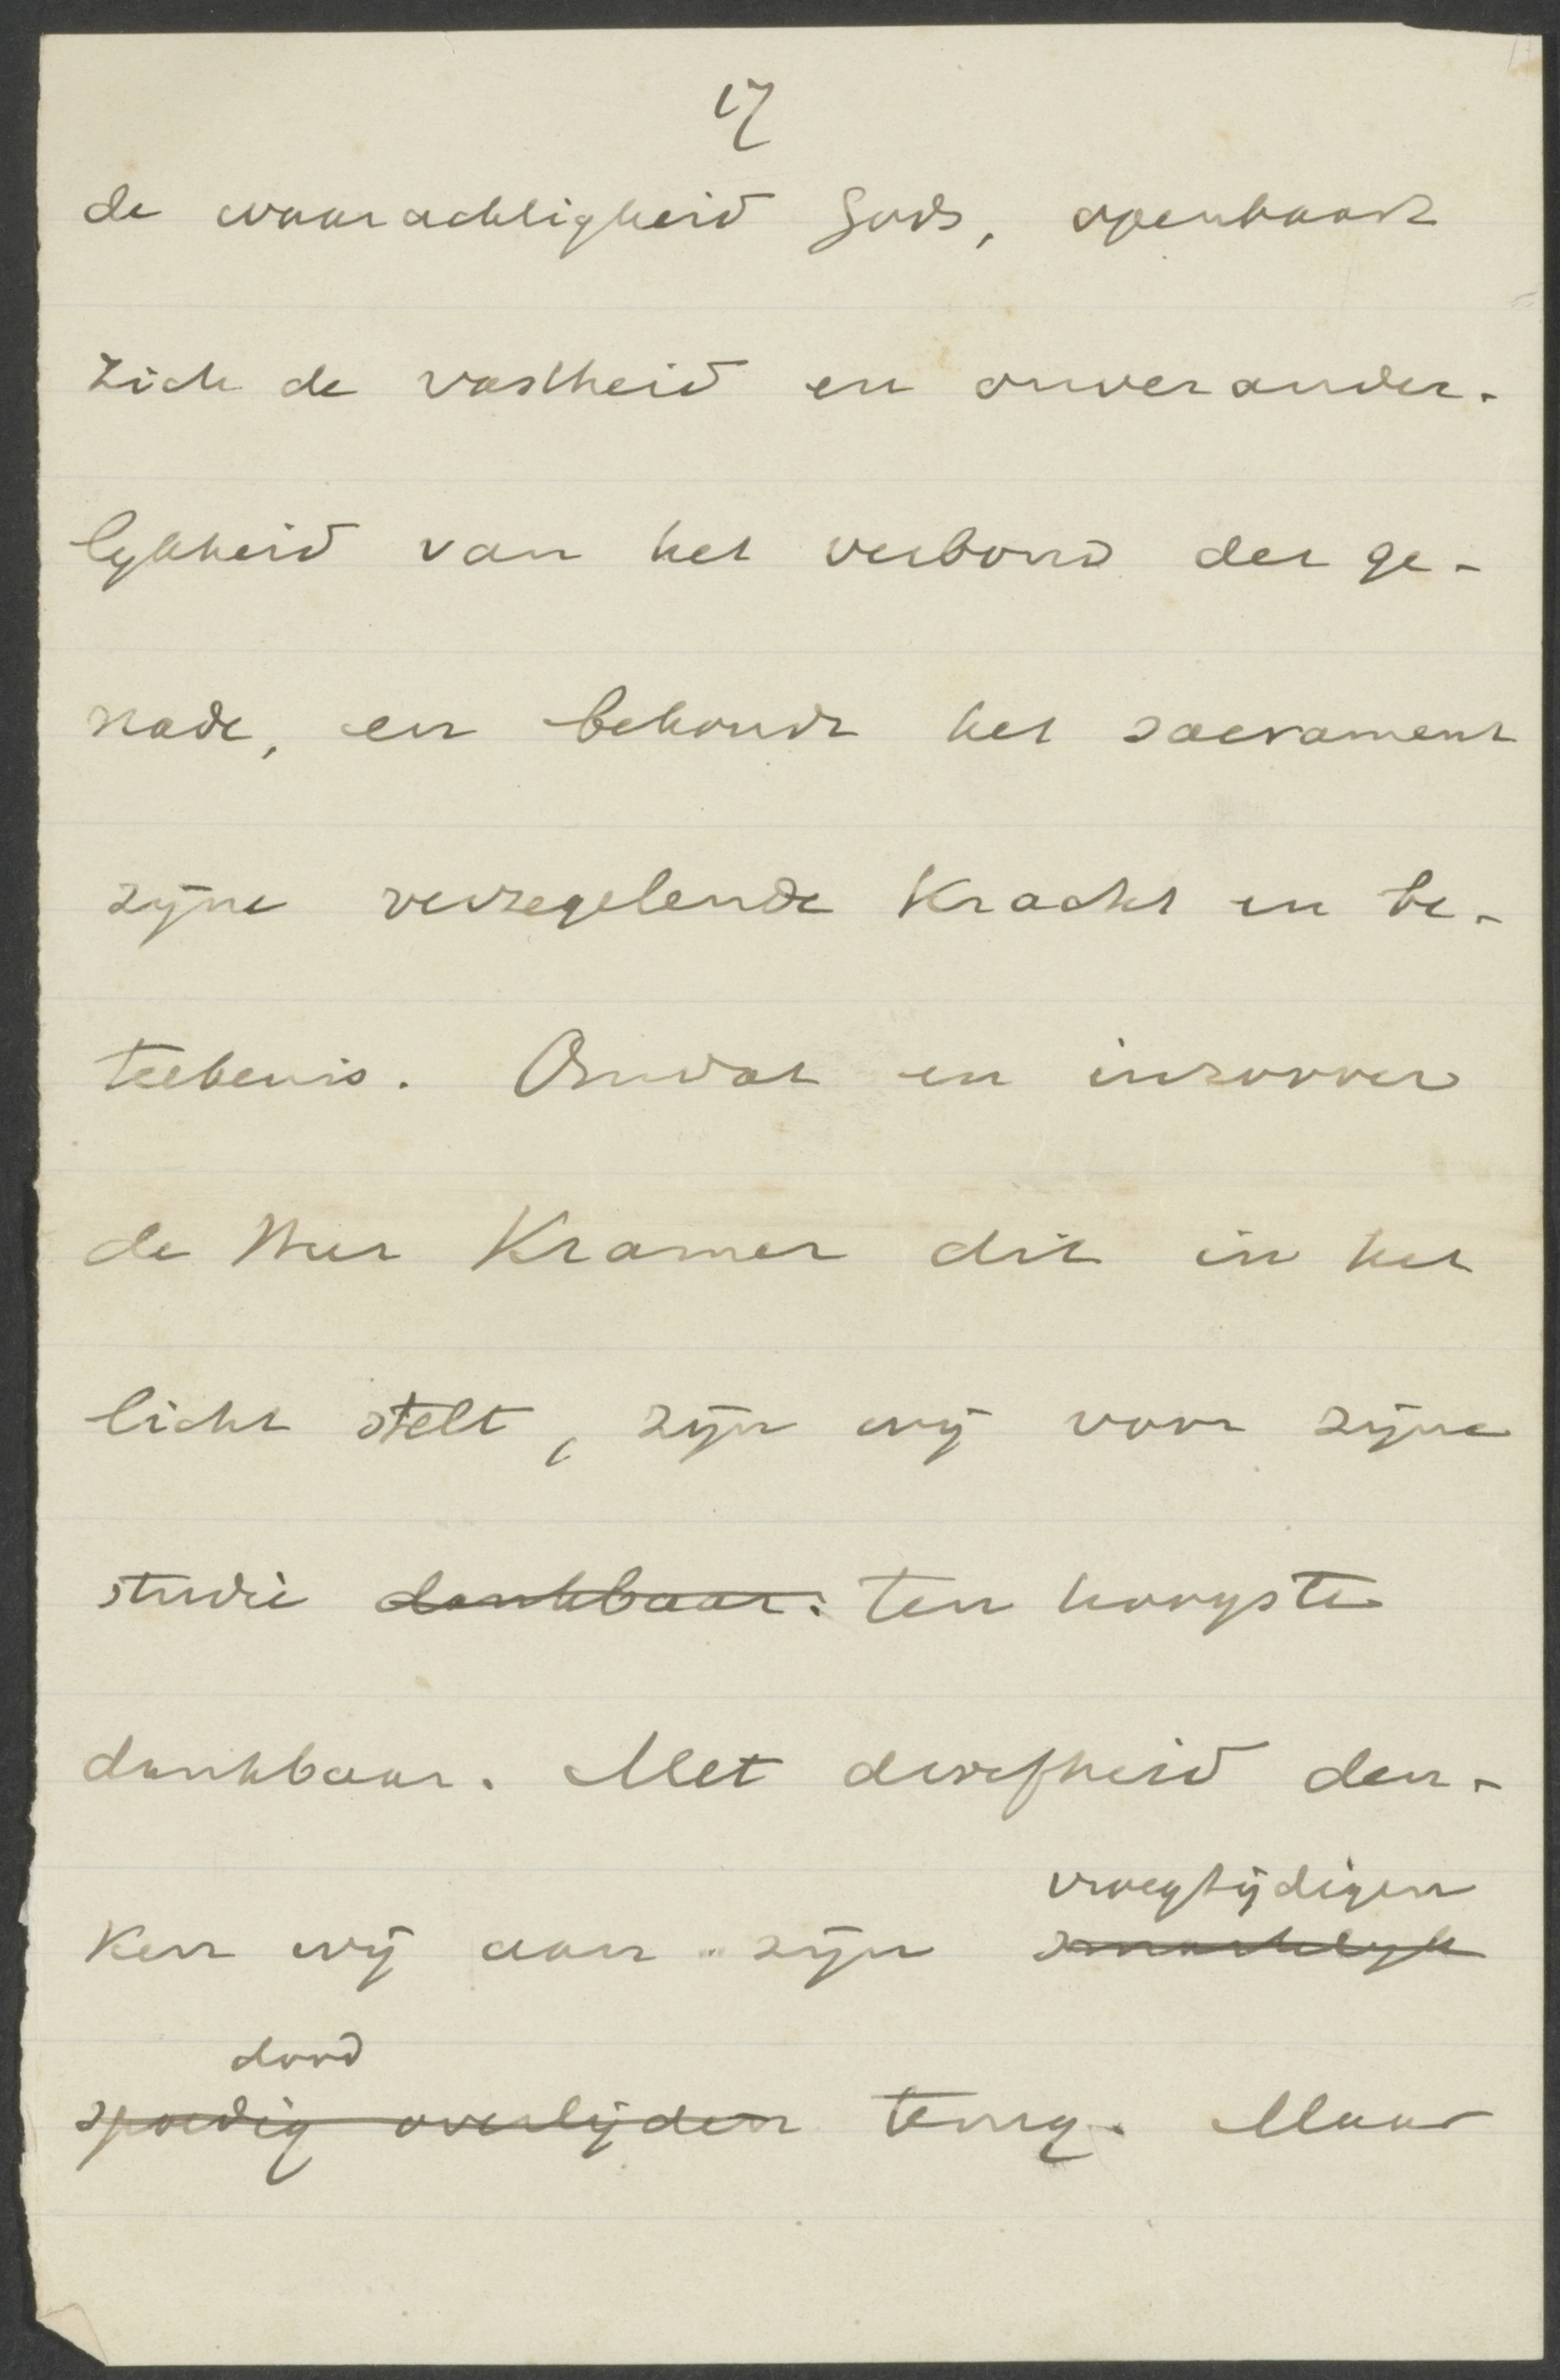 17
de waarachtigheid Gods, openbaart
zich de vastheid en onverander-
lykheid van het verbond der ge-
nade, en behoudt het sacrament
zijne verzegelende Kracht en be-
teekenis. Omdat en inzoover
de Heer Kramer dit in het
licht stelt, zijn wij voor zijne
studie dankbaar. ten hoogste
dankbaar. Met droefheid den-
vroegtijdigen
ken wij aan zijn smartelyk
dood
spoedig overlijden terug. Maar